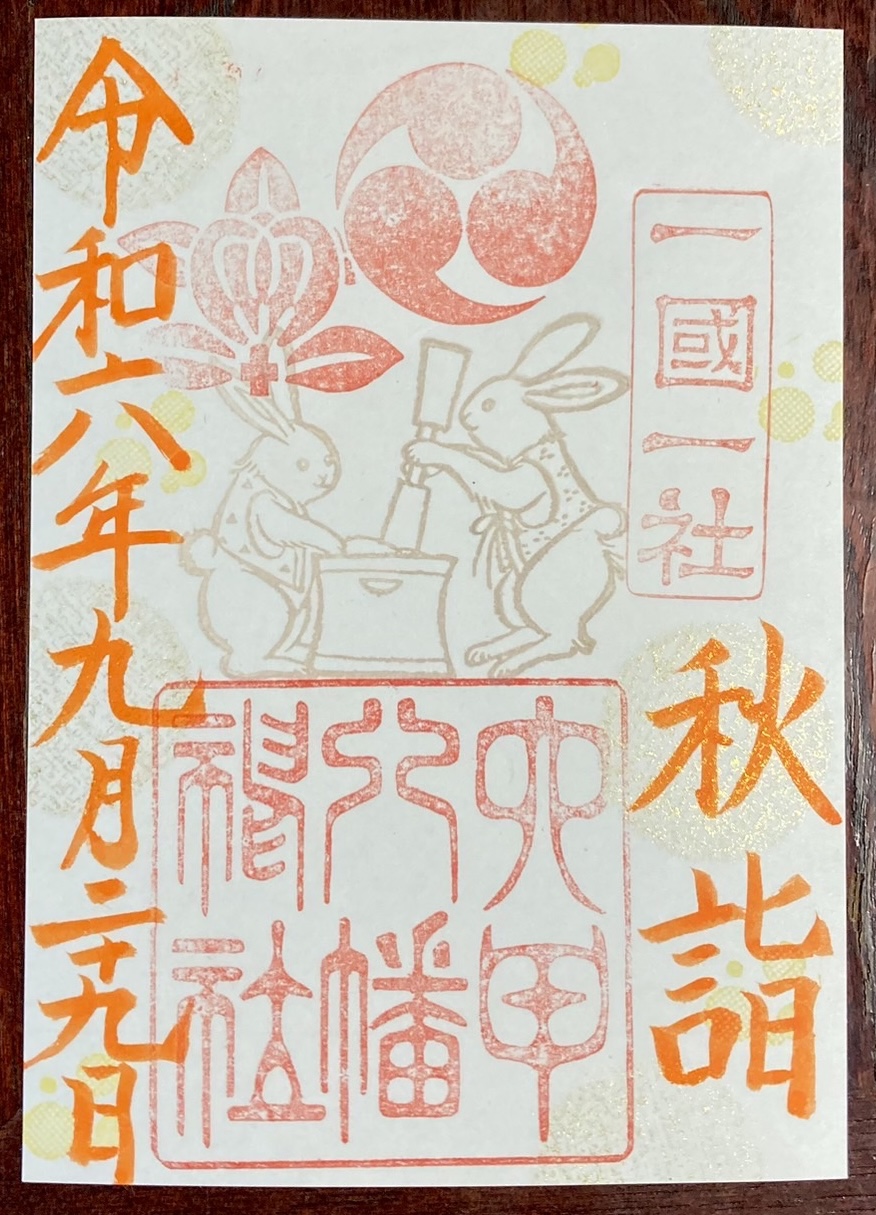 一國一社
秋詣
六甲
八幡
神社
令和六年九月二十九日